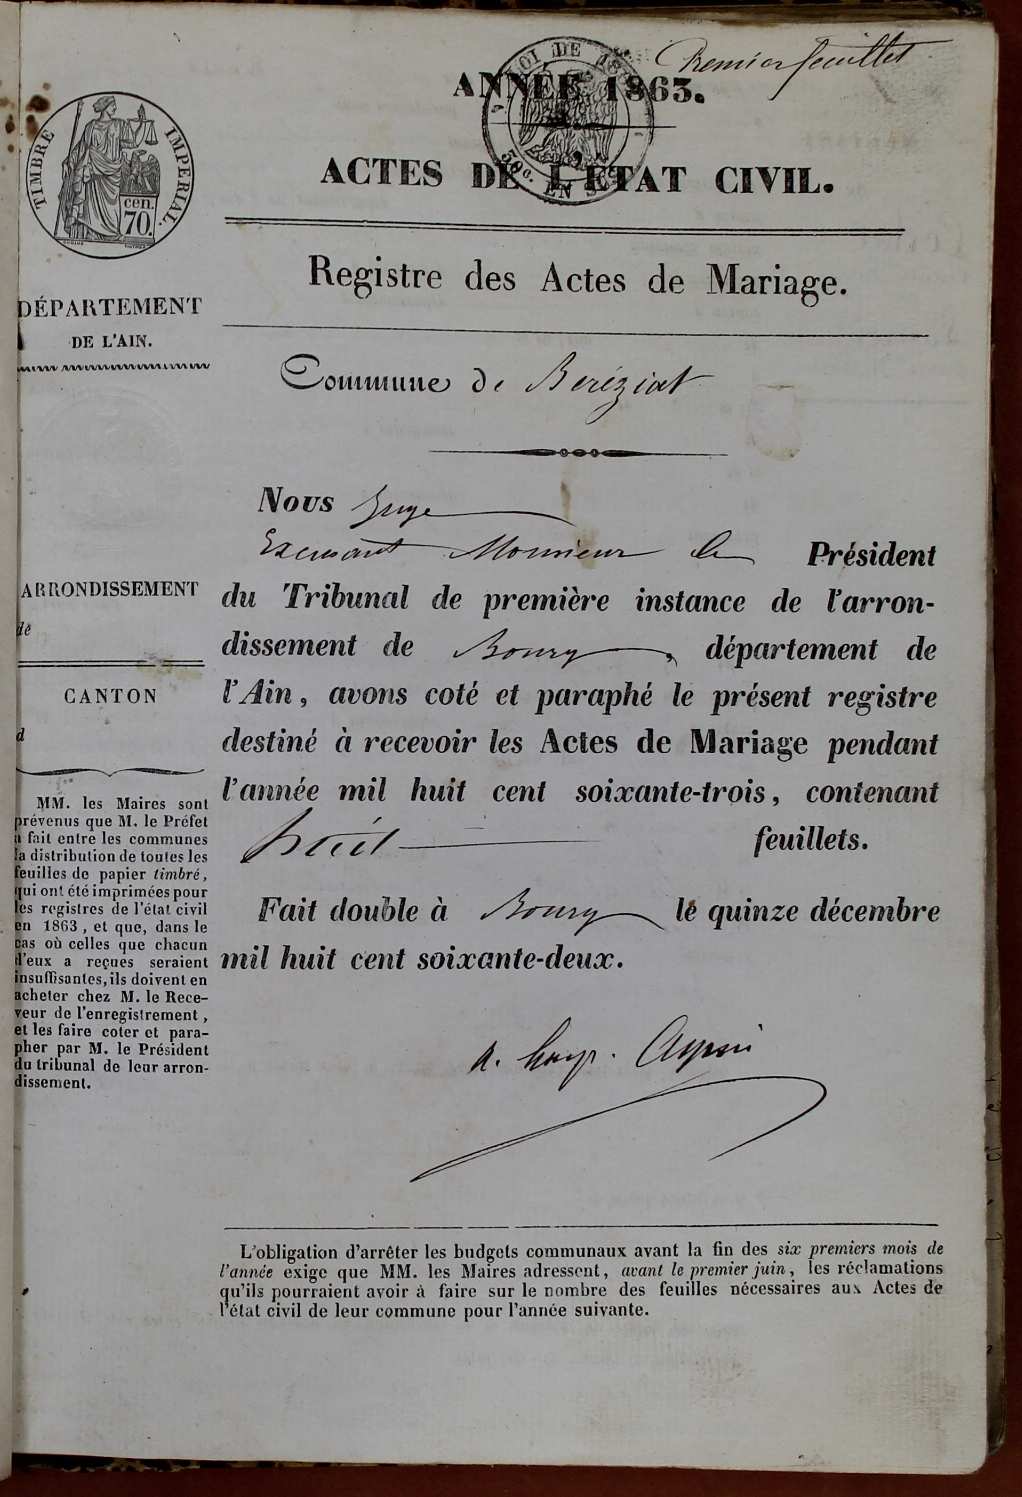 Premier feuillet
ANNÉE 1863.
LOI DE
50c. EN SUS
ACTES DE L'ÉTAT CIVIL.
TIMBRE IMPÉRIAL.
cen.
70.
Registre des Actes de Mariage.
DÉPARTEMENT
DE L'AIN.
Commune de Beréziat
Nous
Monsieur le Président
du Tribunal de première instance de l'arron-
dissement de Bourg, département de
l'Ain, avons coté et paraphé le présent registre
destiné à recevoir les Actes de Mariage pendant
l'année mil huit cent soixante-trois, contenant
huit feuillets.
Fait double à Bourg le quinze décembre
mil huit cent soixante-deux.
ARRONDISSEMENT
de
CANTON
d
MM. les Maires sont
prévenus que M. le Préfet
a fait entre les communes
la distribution de toutes les
feuilles de papier timbré,
qui ont été imprimées pour
les registres de l'état civil
en 1863, et que, dans le
cas où celles que chacun
d'eux a reçues seraient
insuffisantes, ils doivent en
acheter chez M. le Rece-
veur de l'enregistrement,
et les faire coter et para-
pher par M. le Président
du tribunal de leur arron-
dissement.
L'obligation d'arrêter les budgets communaux avant la fin des six premiers mois de
l'année exige que MM. les Maires adressent, avant le premier juin, les réclamations
qu'ils pourraient avoir à faire sur le nombre des feuilles nécessaires aux Actes de
l'état civil de leur commune pour l'année suivante.